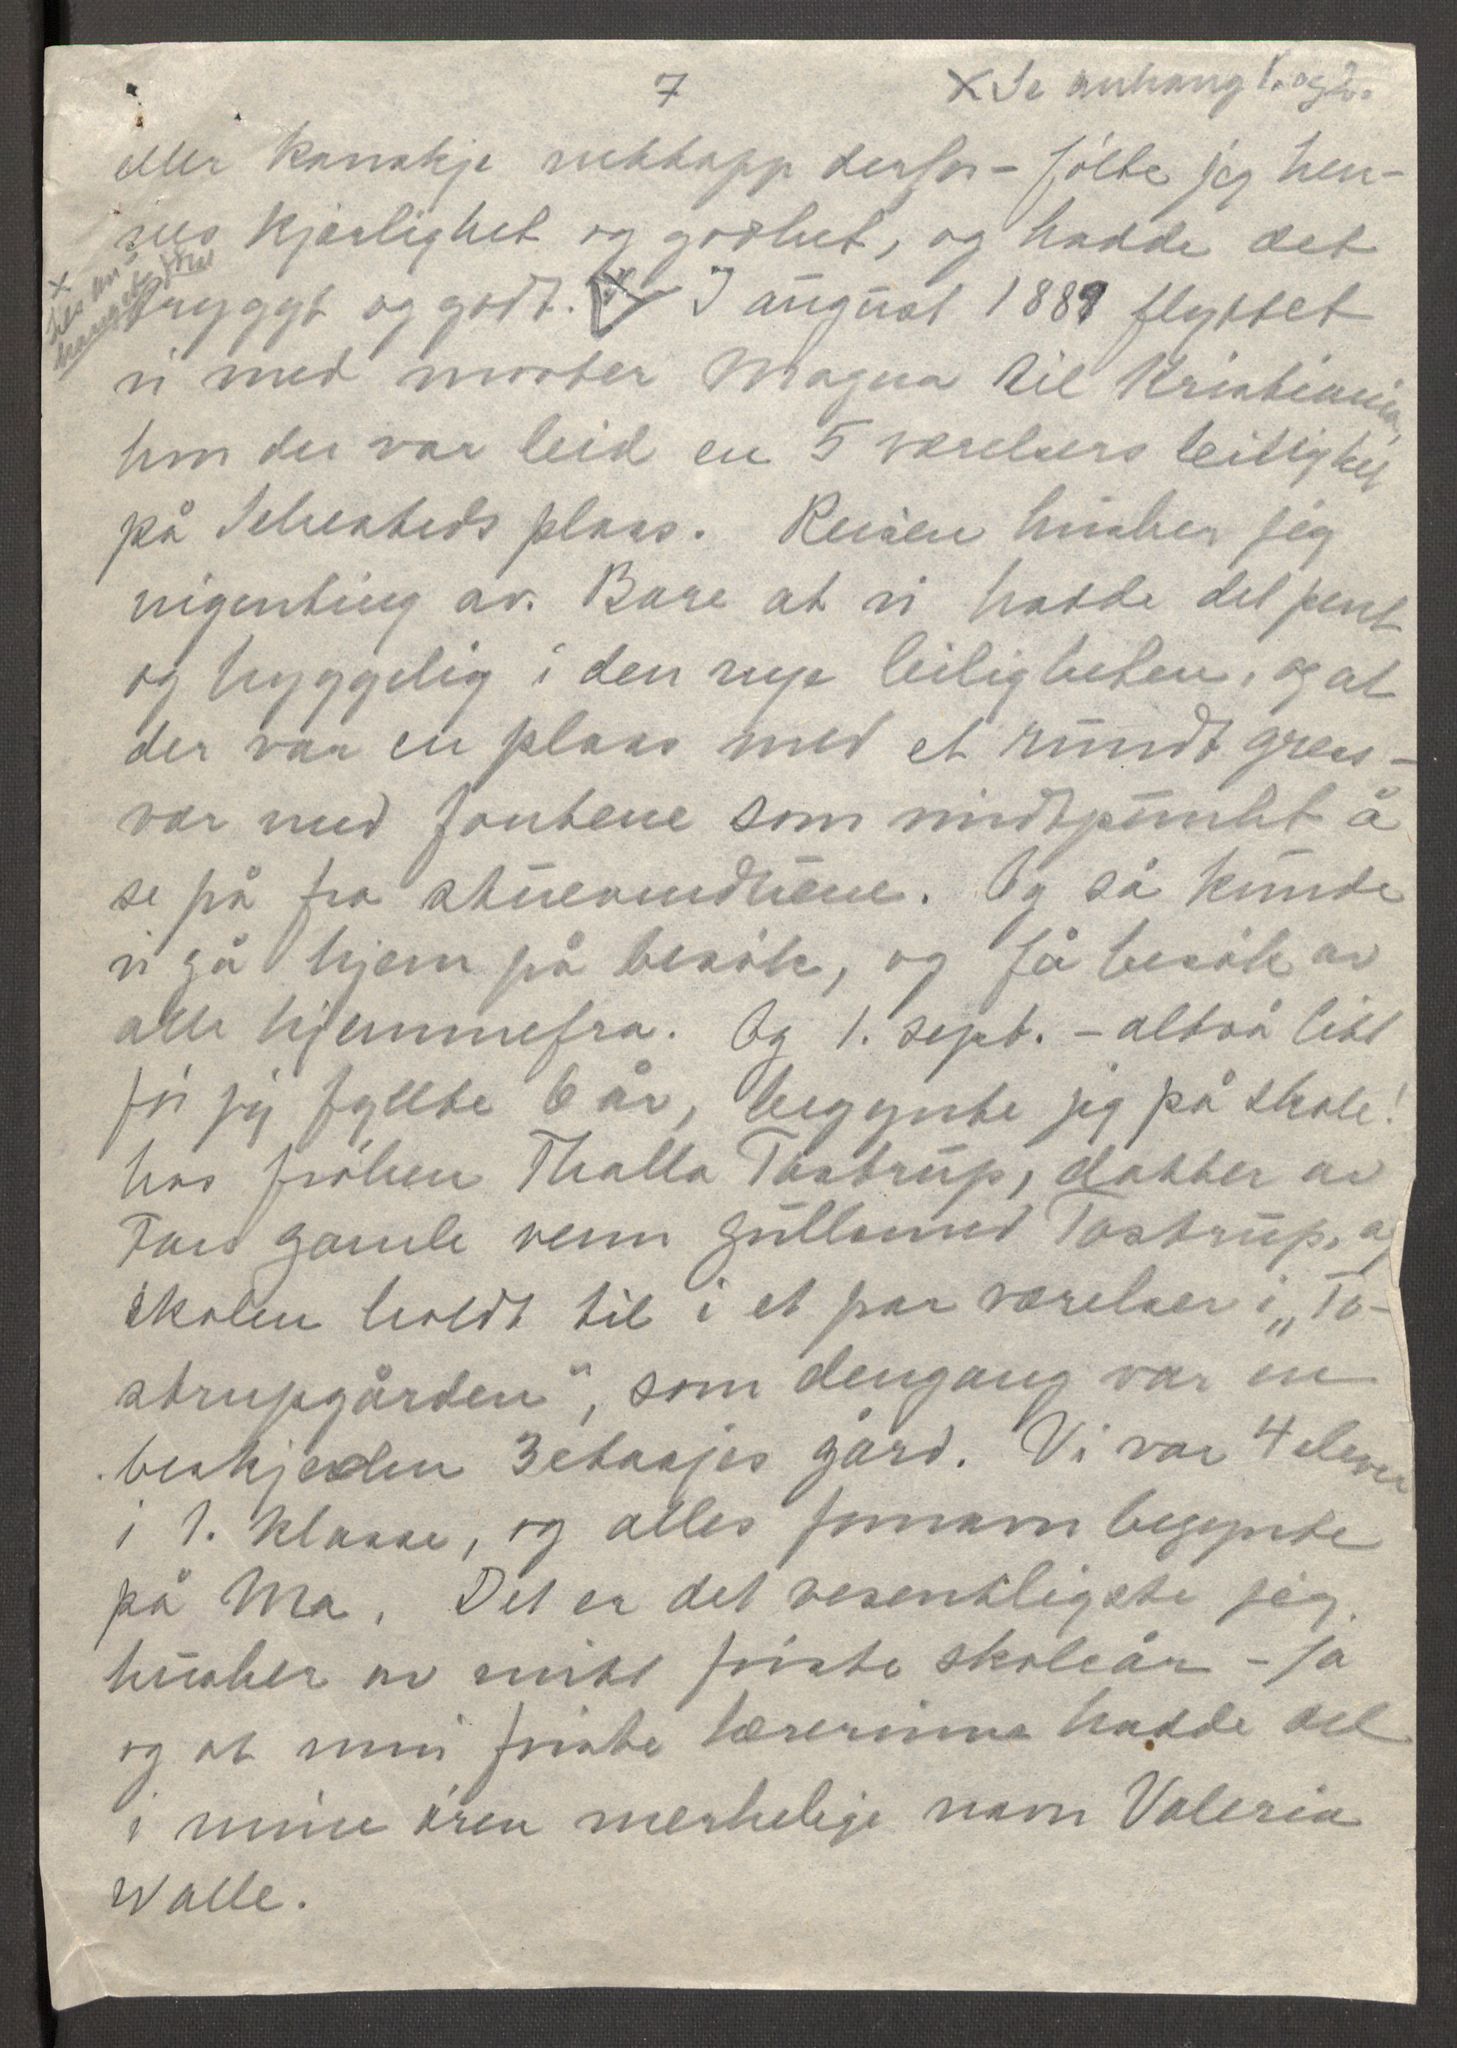 7
× Se anhang 1. og 2.
eller kanskje nettopp derfor – fölte jeg hen-
nes kjærlighet og godhet, og hadde det
×
tryggt og godt. I august 1889 flyttet
vi med moster Magna til Kristiania,
hvor der var leid en 5 værelsers leilighet
på Schesteds plass. Reisen husker jeg
ingenting av. Bare at vi hadde det pent
og hyggelig i den nye leiligheten, og at
der var en plass med et rundt gress-
vær med fontene som midtpunkt å
se på fra stuevinduene. Og så kunde
vi gå hjem på besök, og få besök av
alle hjemmefra. Og 1. sept. – altså litt
för jeg fyllte 6 år, begynte jeg på skole!
hos fröken Thalla Tostrup, datter av
Fars gamle venn gullsmed Tostrup, og
skolen holdt til i et par værelser i „To-
strupgården", som dengang var en
beskjeden 3 etasjes gård. Vi var 4 elever
i 1. klasse, og alles fornavn begynte
på Ma. Det er det vesentligste jeg
husker av mitt förste skoleår – ja
og at min förste lærerinne hadde det
i mine ören merkelige navn Valeria
Walle.